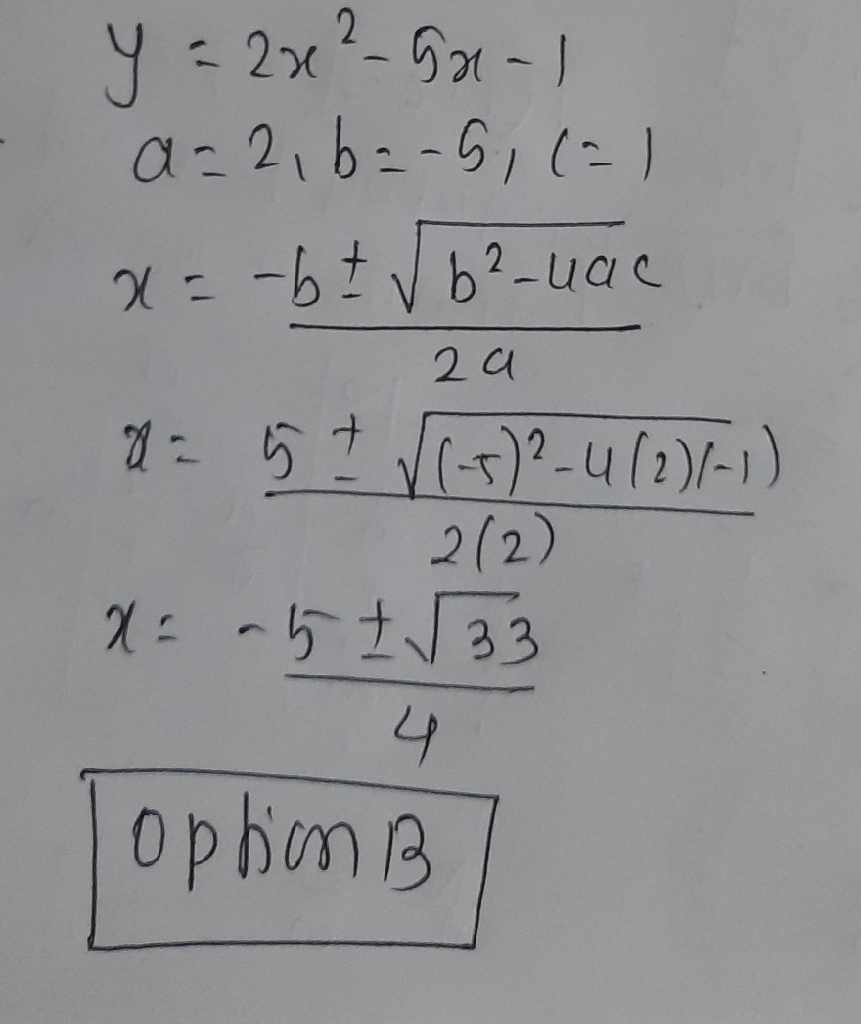 y = 2x² - 5x - 1
a = 2, b = -5, c = 1
x = -b ± √b² - 4ac
2a
x = 5 ± √(-5)² - 4(2)(-1)
2(2)
x = -5 ± √33
4
Option B